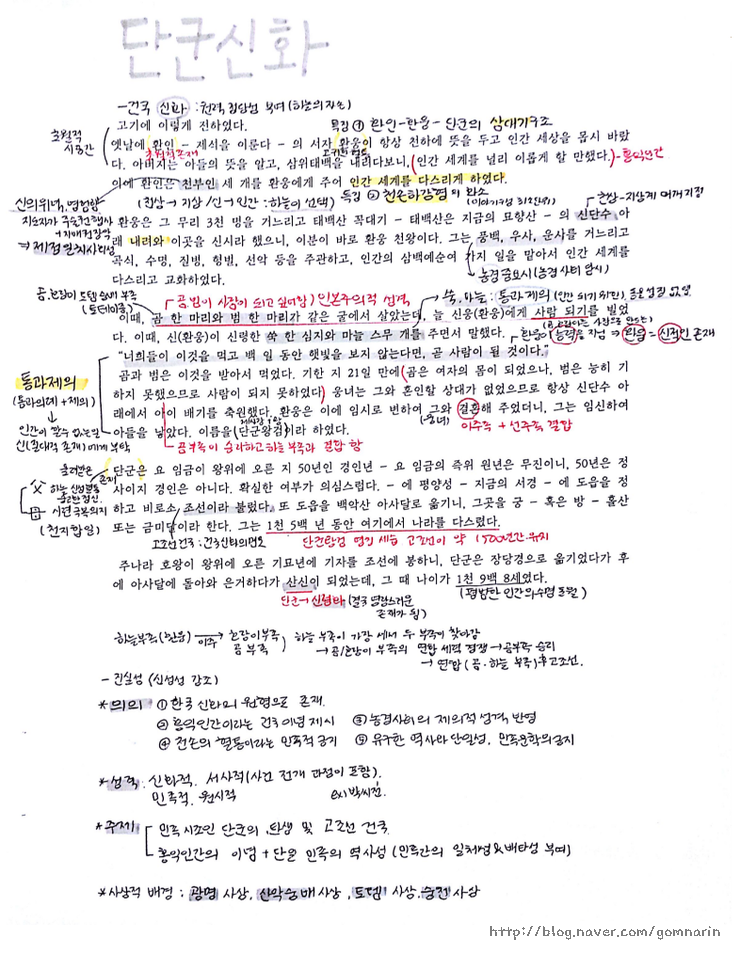 단군신화
-건국 신화 : 천적 집단성 부여 (하늘의 자손)
고기에 이렇게 전하였다.
특징 ① 환인-환웅-단군의 삼대기구조
초월적
시공간
옛날에 환인 - 제석을 이룬다 - 의 서자 환웅이 항상 천하에 뜻을 두고 인간 세상을 몹시 바랐
다. 아버지는 아들의 뜻을 알고, 삼위태백을 내려다보니, (인간 세계를 널리 이롭게 할 만했다.) -홍익인간
이에 환인은 천부인 세 개를 환웅에게 주어 인간 세계를 다스리게 하였다.
신의 위념, 영험함
(천상→지상 / 신→인간 : 하늘이 선택)
특징 ② 천손하강형
천상-지상계 매개지점
환웅은 그 무리 3천 명을 거느리고 태백산 꼭대기 - 태백산은 지금의 묘향산 - 의 신단수 아
래 내려와 이곳을 신시라 했으니, 이분이 바로 환웅 천왕이다. 그는 풍백, 우사, 운사를 거느리고
⇒ 제정일치사회성
곡식, 수명, 질병, 형벌, 선악 등을 주관하고, 인간의 삼백예순여 가지 일을 맡아서 인간 세계를
다스리고 교화하였다.
농경 중요시 (농경 사회 암시)
곰, 호랑이 토템 숭배 부족
(토테미즘)
곰범이 사람이 되고 싶어함) 인본주의적 성격
쑥, 마늘 : 통과제의
이때, 곰 한 마리와 범 한 마리가 같은 굴에서 살았는데, 늘 신웅(환웅)에게 사람 되기를 빌었
다. 이때, 신(환웅)이 신령한 쑥 한 심지와 마늘 스무 개를 주면서 말했다.
"너희들이 이것을 먹고 백 일 동안 햇빛을 보지 않는다면, 곧 사람이 될 것이다."
통과제의
(통과의례+제의)
곰과 범은 이것을 받아서 먹었다. 기한 지 21일 만에 (곰은 여자의 몸이 되었으나, 범은 능히 기
하지 못했으므로 사람이 되지 못하였다) 웅녀는 그와 혼인할 상대가 없었으므로 항상 신단수 아
래에서 아이 배기를 축원했다. 환웅은 이에 임시로 변하여 그와 결혼해 주었더니, 그는 임신하여
(=웅녀)
아들을 낳았다. 이름을 (단군왕검)이라 하였다.
이주족 + 선주족 결합
신(초대적 존재)에게 부탁
곰부족이 승리하고 하늘 부족과 결합 함
단군은 요 임금이 왕위에 오른 지 50년인 경인년 - 요 임금의 즉위 원년은 무진이니, 50년은 정
사이지 경인은 아니다. 확실한 여부가 의심스럽다. - 에 평양성 - 지금의 서경 - 에 도읍을 정
하고 비로소 조선이라 불렀다. 또 도읍을 백악산 아사달로 옮기니, 그곳을 궁 - 혹은 방 - 홀산
또는 금미달이라 한다. 그는 1천 5백 년 동안 여기에서 나라를 다스렸다.
(천지합일)
고조선 건국 : 건국신화의 면모
단군왕검 명의 세습 고조선이 약 1500년간 유지
주나라 호왕이 왕위에 오른 기묘년에 기자를 조선에 봉하니, 단군은 장당경으로 옮기었다가 후
에 아사달에 돌아와 은거하다가 산신이 되었는데, 그 때 나이가 1천 9백 8세였다.
단군→신격화
(평범한 인간의 수명 초월)
하늘부족(환웅) → 이주 호랑이부족
곰 부족
하늘 부족이 가장 세서 두 부족이 찾아감
→ 곰/호랑이 부족의 연합 세력 경쟁 → 곰부족 승리
→ 연합 (곰·하늘 부족) 후 고조선.
- 진실성 (신성성 강조)
*의의 ① 한국 신화의 원형으로 존재.
② 홍익인간이라는 건국 이념 제시 ③ 농경사회의 제의적 성격 반영
④ 천손의 혈통이라는 민족적 긍지 ⑤ 유구한 역사와 단일성, 민족문학의 긍지
*성격 : 신화적, 서사적(사건 전개 과정이 포함).
민족적, 원시적
*주제 민족 시조인 단군의 탄생 및 고조선 건국
홍익인간의 이념 + 단일 민족의 역사성 (민족간의 일체성&배타성 부여)
*사상적 배경 : 광명 사상, 산악숭배사상, 토템 사상, 숭천 사상
http://blog.naver.com/gomnarin